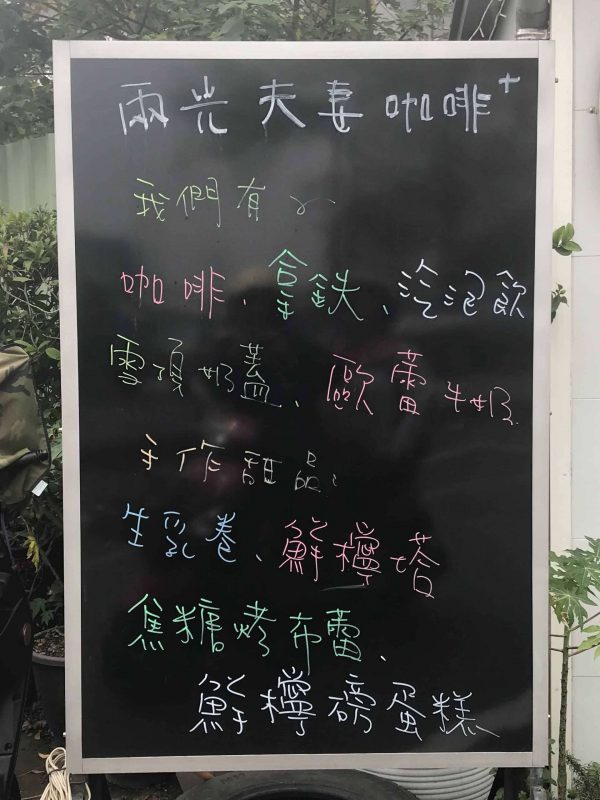 兩光夫妻咖啡+
我們有～
咖啡、拿鉄、汽泡飲
雪頂奶蓋、歐蕾牛奶
手作甜品：
生乳卷、鮮檸塔
焦糖烤布蕾、
鮮檸磅蛋糕